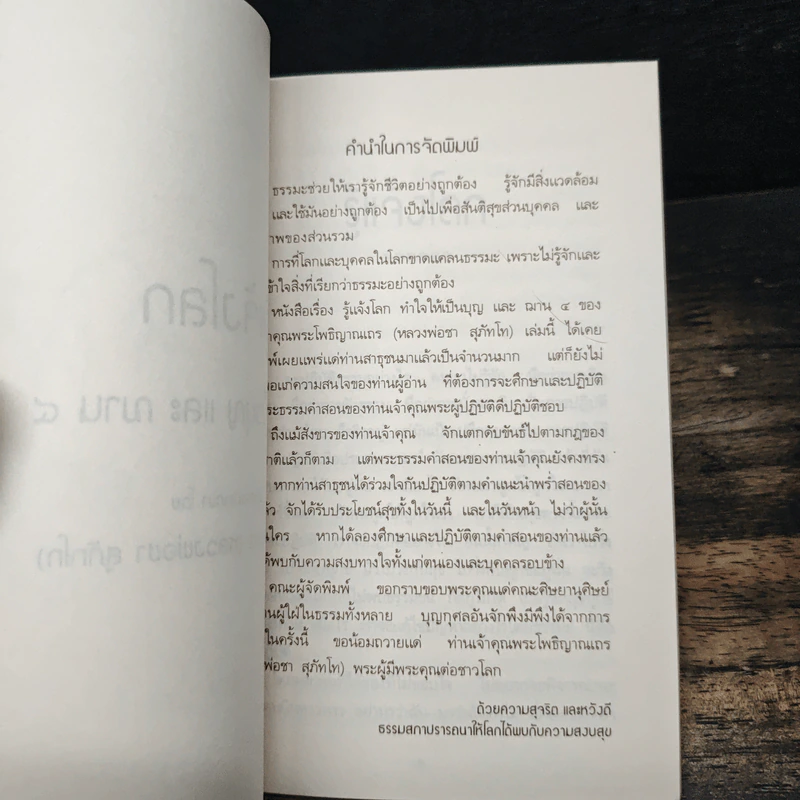 คำนำในการจัดพิมพ์
ธรรมะช่วยให้เรารู้จักชีวิตอย่างถูกต้อง รู้จักมีสิ่งแวดล้อม
และใช้มันอย่างถูกต้อง เป็นไปเพื่อสันติสุขส่วนบุคคล และ
ภาพของส่วนรวม
การที่โลกและบุคคลในโลกขาดแคลนธรรมะ เพราะไม่รู้จักและ
เข้าใจสิ่งที่เรียกว่าธรรมะอย่างถูกต้อง
หนังสือเรื่อง รู้แจ้งโลก ทำใจให้เป็นบุญ และ ฌาน ๔ ของ
าคุณพระโพธิญาณเถร (หลวงพ่อชา สุภัทโท) เล่มนี้ ได้เคย
พ์เผยแพร่แด่ท่านสาธุชนมาแล้วเป็นจำนวนมาก แต่ก็ยังไม่
พอแก่ความสนใจของท่านผู้อ่าน ที่ต้องการจะศึกษาและปฏิบัติ
ระธรรมคำสอนของท่านเจ้าคุณพระผู้ปฏิบัติดีปฏิบัติชอบ
ถึงแม้สังขารของท่านเจ้าคุณ จักแตกดับขันธ์ไปตามกฎของ
าติแล้วก็ตาม แต่พระธรรมคำสอนของท่านเจ้าคุณยังคงทรง
หากท่านสาธุชนได้ร่วมใจกันปฏิบัติตามคำแนะนำพร่ำสอนของ
ล้ว จักได้รับประโยชน์สุขทั้งในวันนี้ และในวันหน้า ไม่ว่าผู้นั้น
นใคร หากได้ลองศึกษาและปฏิบัติตามคำสอนของท่านแล้ว
ด้พบกับความสงบทางใจทั้งแก่ตนเองและบุคคลรอบข้าง
คณะผู้จัดพิมพ์ ขอกราบขอบพระคุณแด่คณะศิษยานุศิษย์
นผู้ใฝ่ในธรรมทั้งหลาย บุญกุศลอันจักพึงมีพึงได้จากการ
ในครั้งนี้ ขอน้อมถวายแด่ ท่านเจ้าคุณพระโพธิญาณเถร
พ่อชา สุภัทโท) พระผู้มีพระคุณต่อชาวโลก
ด้วยความสุจริต และหวังดี
ธรรมสภาปรารถนาให้โลกได้พบกับความสงบสุข